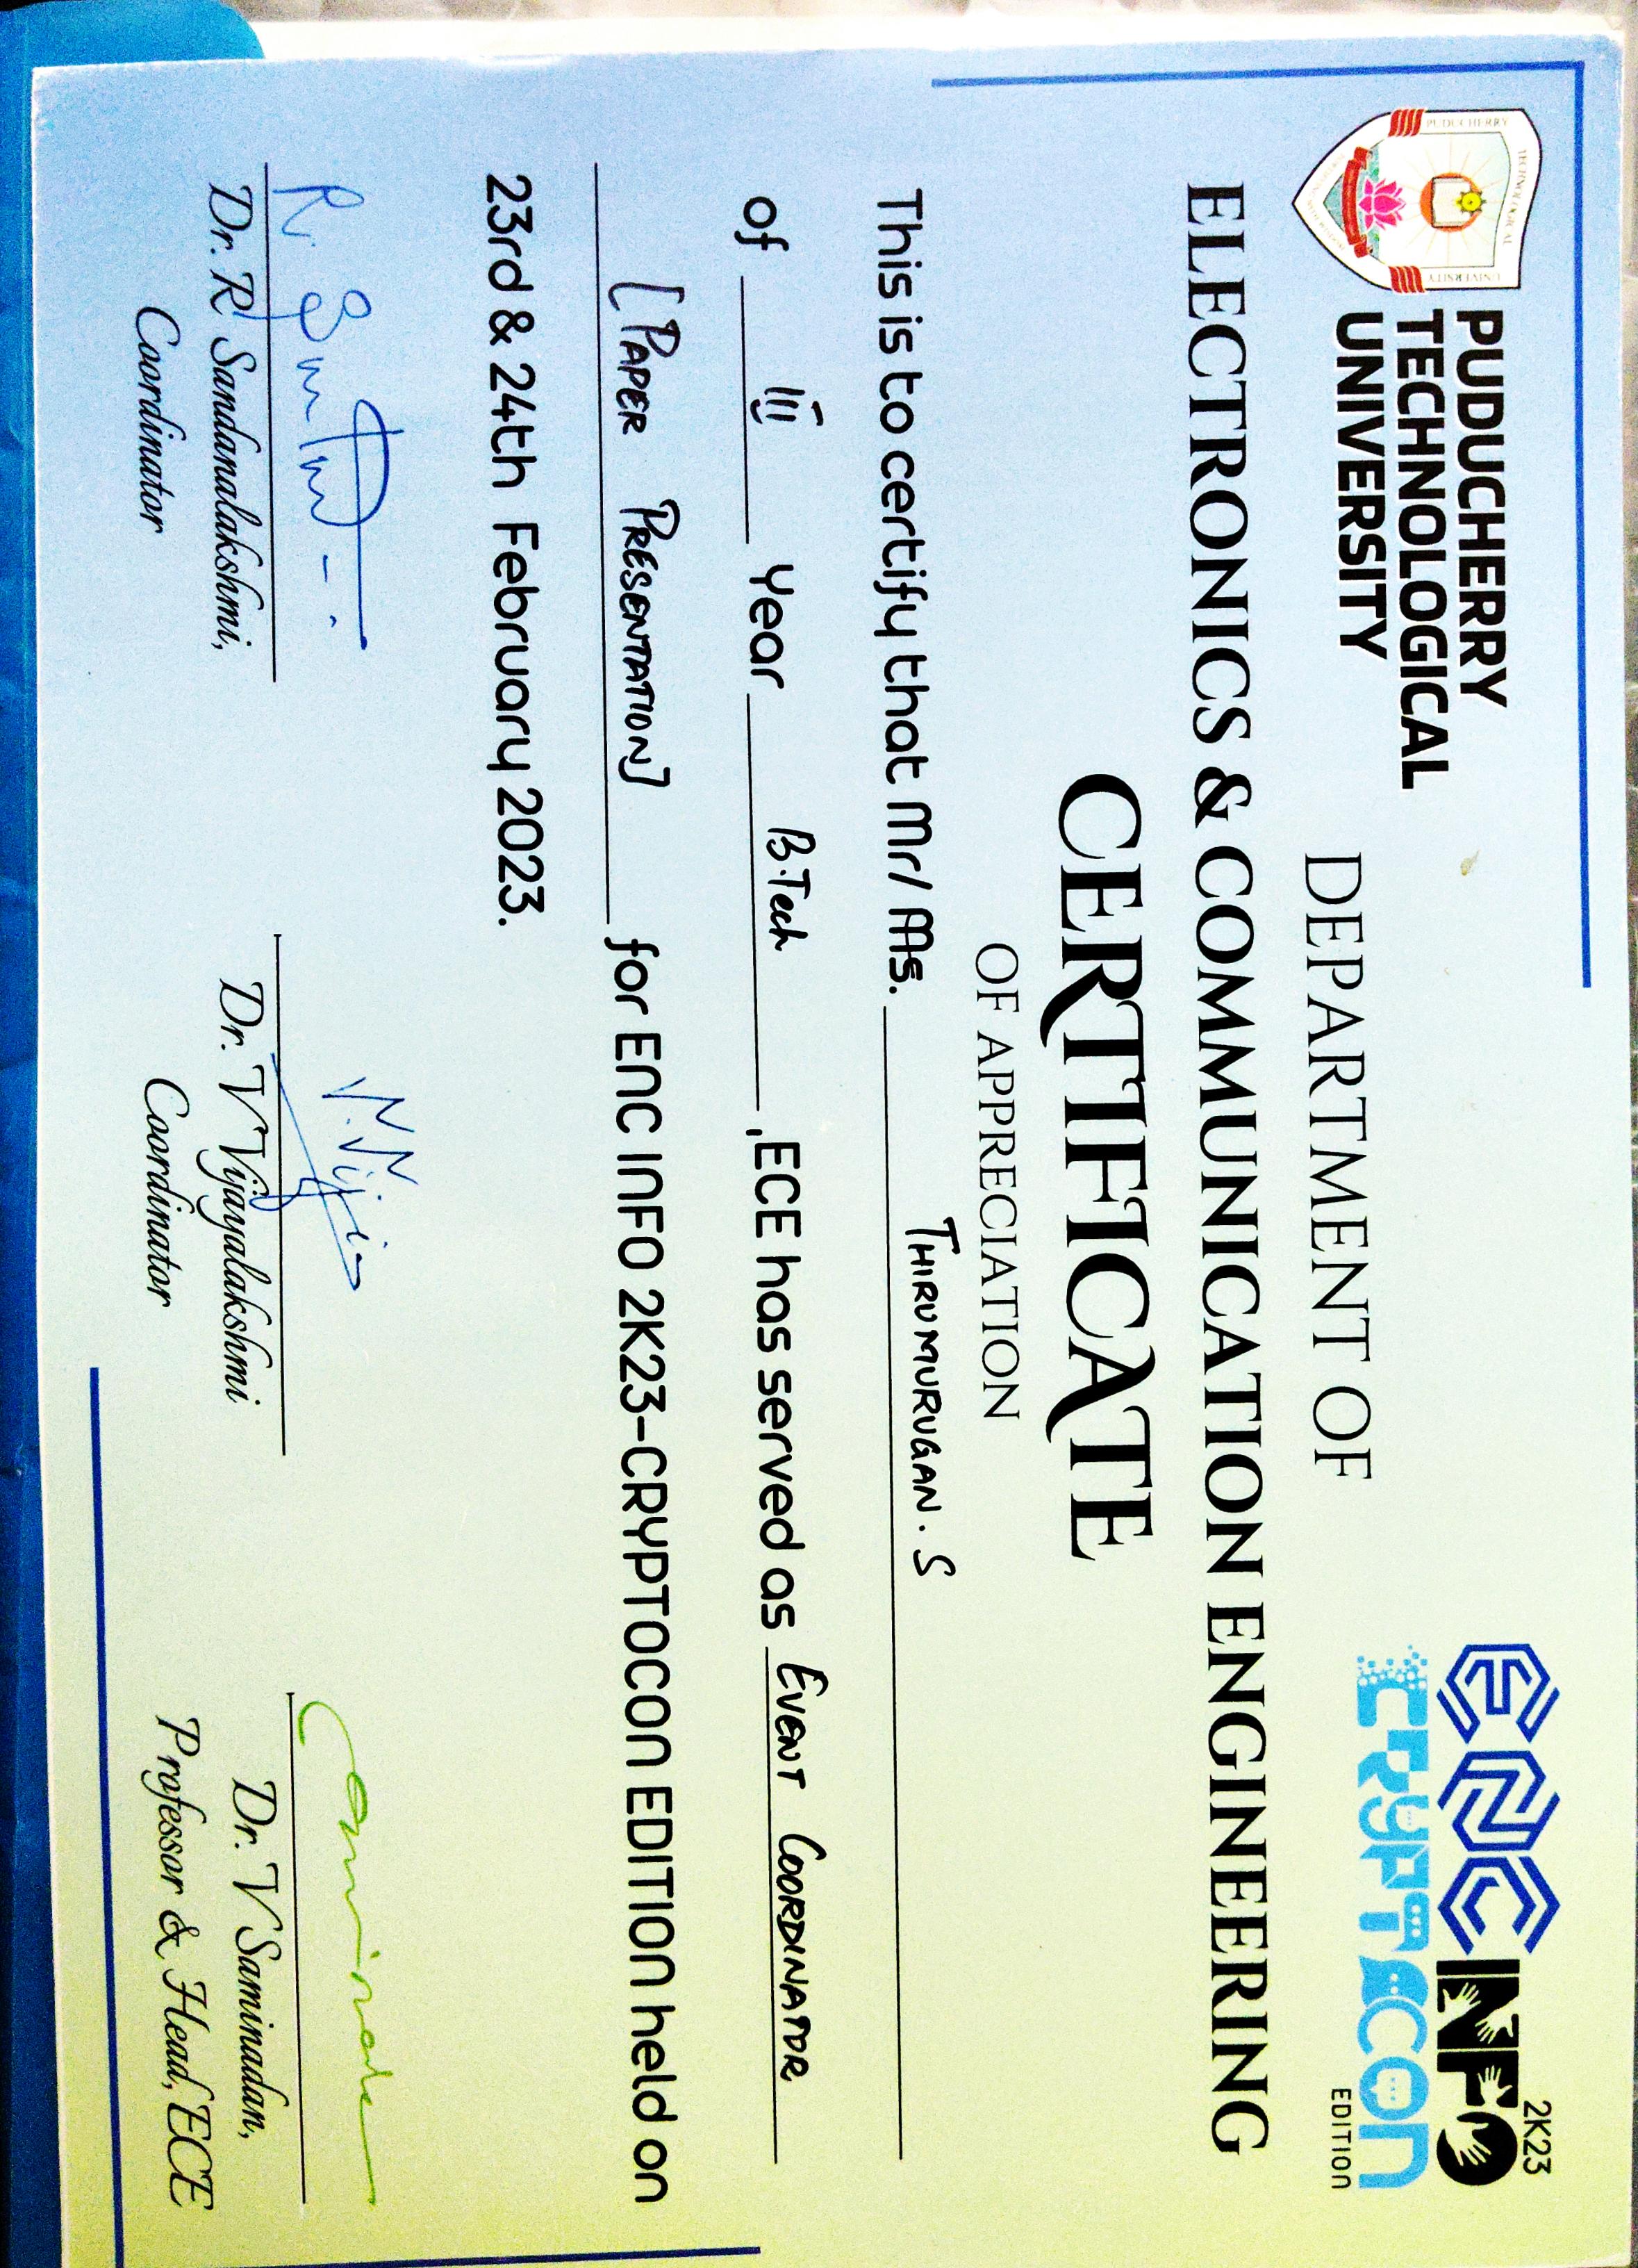 PUDUCHERRY
TECHNOLOGICAL
UNIVERSITY
2K23
ENC INFO
CRYPTOCON
EDITION
DEPARTMENT OF
ELECTRONICS & COMMUNICATION ENGINEERING
CERTIFICATE
OF APPRECIATION
This is to certify that Mr/ Ms. THIRUMURUGAN. S
of III Year B.Tech ,ECE has served as EVENT COORDINATOR
[PAPER PRESENTATION] for ENC INFO 2K23-CRYPTOCON EDITION held on
23rd & 24th February 2023.
Dr. R Sandanalakshmi,
Coordinator
Dr. V Vijayalakshmi
Coordinator
Dr. V Saminadan,
Professor & Head, ECE